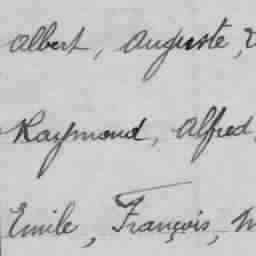 Albert, Auguste,
Raymond, Alfred,
Emile, François,